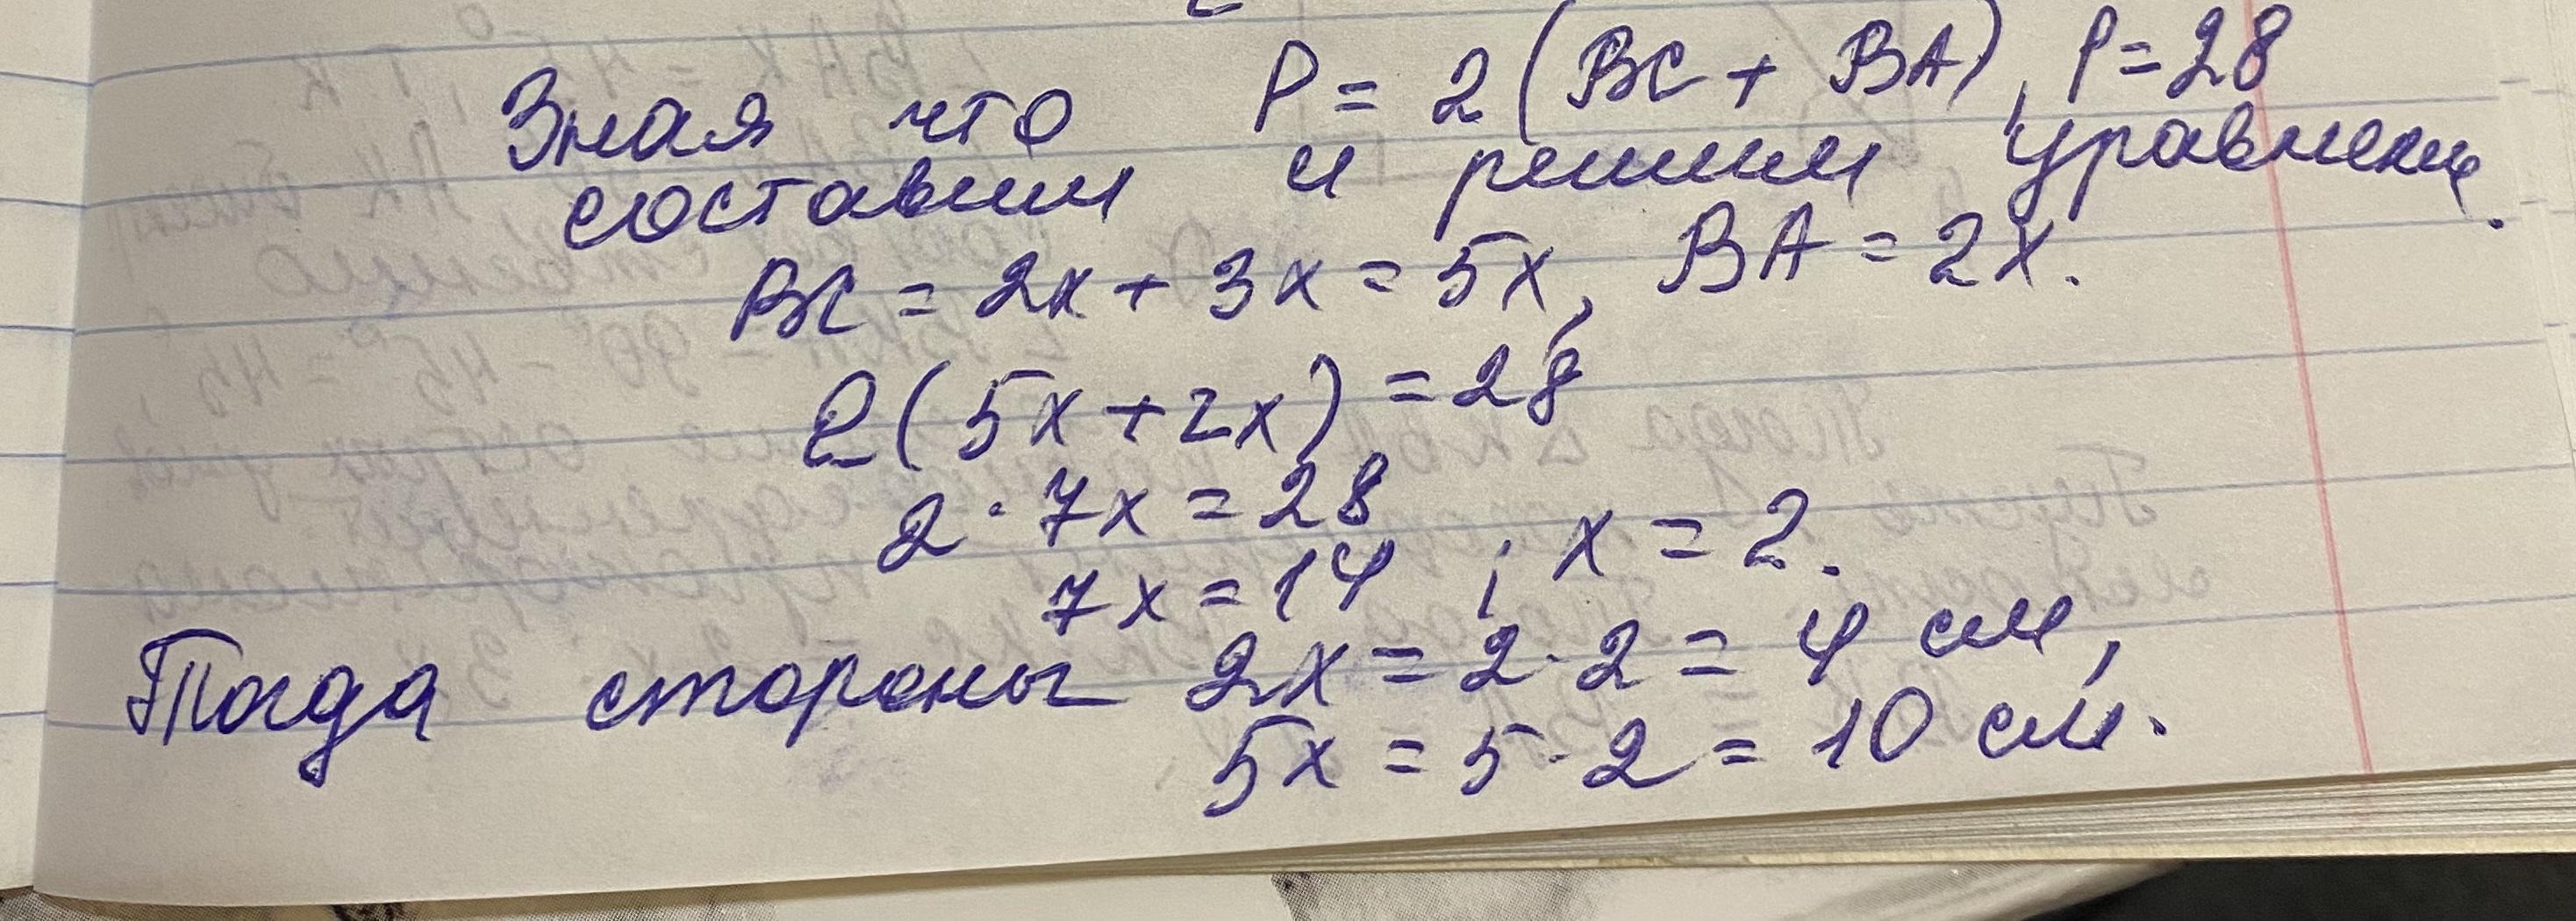 Зная что P = 2(BC + BA), P = 28
составим и решим уравнение.
BC = 2x + 3x = 5x, BA = 2x.
2(5x + 2x) = 28
2 · 7x = 28
7x = 14 ; x = 2.
Тогда стороны 2x = 2 · 2 = 4 см,
5x = 5 · 2 = 10 см.